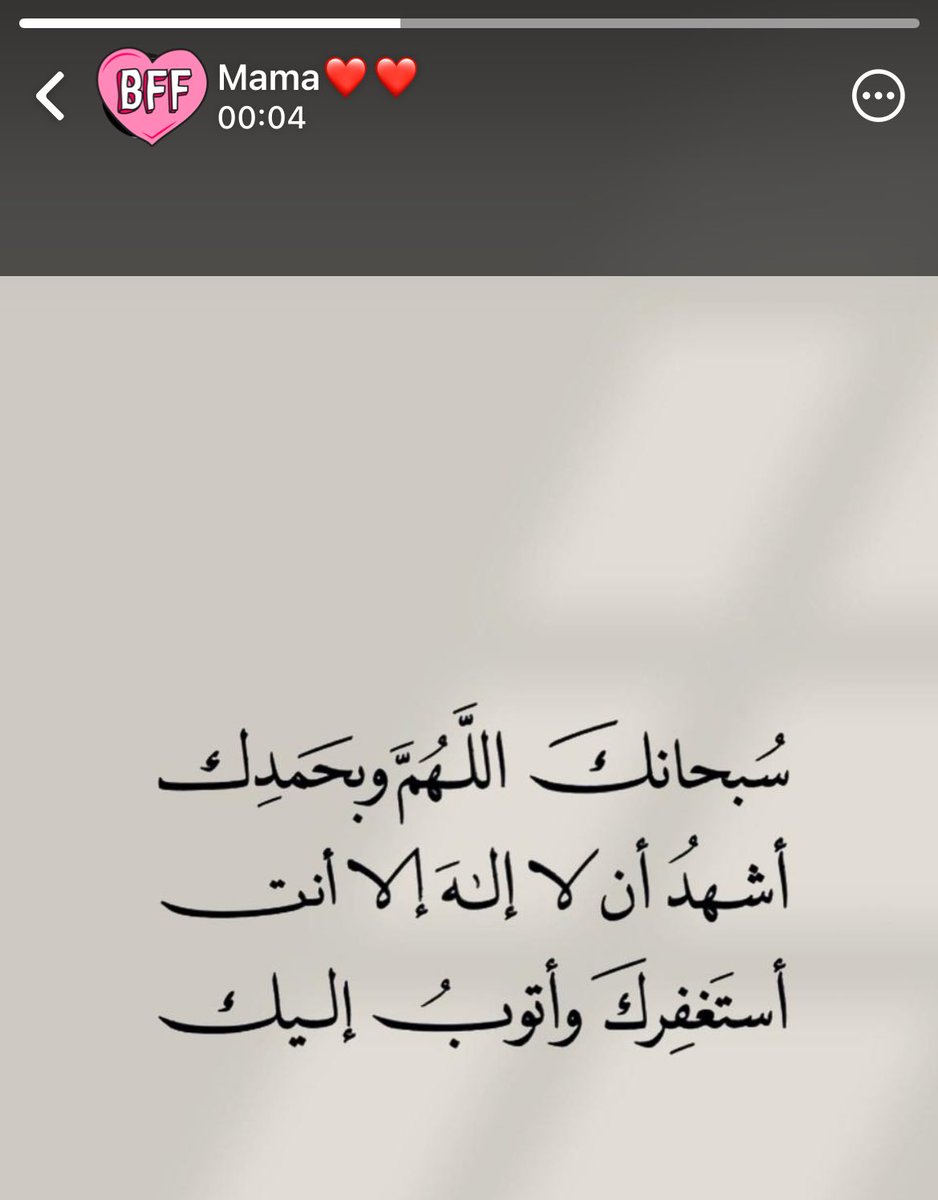 BFF
Mama❤️❤️
00:04
سُبحانكَ اللَّهُمَّ وبِحَمدِك
أشهدُ أن لا إلٰهَ إلا أنت
أستَغفِركَ وأتوبُ إليك